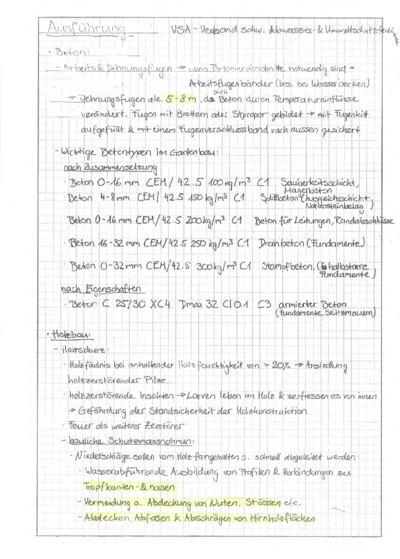 Ausführung
VSA - Verband schw. Abwasser- & Umweltschutzfachleute
· Beton:
- Arbeits & Dehnungsfugen → wenn Betonierabschnitte notwendig sind =
Arbeitsfugenbänder (bes. bei Wasserbecken)
→ Dehnungsfugen alle 5-8 m, da Beton durch Temperatureinflüsse
verändert. Fugen mit Brettern oder Styropor gebildet → mit Fugenkitt
aufgefüllt & mit einen Fugenverschlussband nach aussen gesichert
- Wichtige Betontypen im Gartenbau:
nach Zusammensetzung
· Beton 0-16 mm CEM/42.5 100 kg/m³ C1 Sauberkeitsschicht,
Magerbeton
· Beton 4-8 mm CEM/42.5 150 kg/m³ C1 Splittbeton (Ausgleichsschicht
Natursteinbelag)
· Beton 0-16 mm CEM/42.5 200 kg/m³ C1 Beton für Leitungen, Randabschlüsse
· Beton 16-32 mm CEM/42.5 250 kg/m³ C1 Drainbeton (Fundamente)
· Beton 0-32 mm CEM/42.5 300 kg/m³ C1 Stampfbeton, (halbstarre
Fundamente)
nach Eigenschaften
· Beton C 25/30 XC4 Dmax 32 Cl 0.1 C3 armierter Beton
(Fundamente, Stützmauern)
· Holzbau:
- Holzschutz:
· Holzfäulnis bei anhaltender Holzfeuchtigkeit von > 20% → Ansiedlung
holzzerstörender Pilze..
· holzzerstörende Insekten → Larven leben im Holz & zerfressen es von innen
→ Gefährdung der Standsicherheit der Holzkonstruktion
· Feuer als weiterer Zerstörer
- bauliche Schutzmassnahmen:
· Niederschläge sollen vom Holz ferngehalten o. schnell abgeleitet werden
- Wasserabführende Ausbildung von Profilen & Verbindungen zu
Tropfkanten- & nasen
- Vermeidung o. Abdeckung von Nuten, Stössen etc.
- Abdecken, Abfasen & Abschrägen von Hirnholzflächen